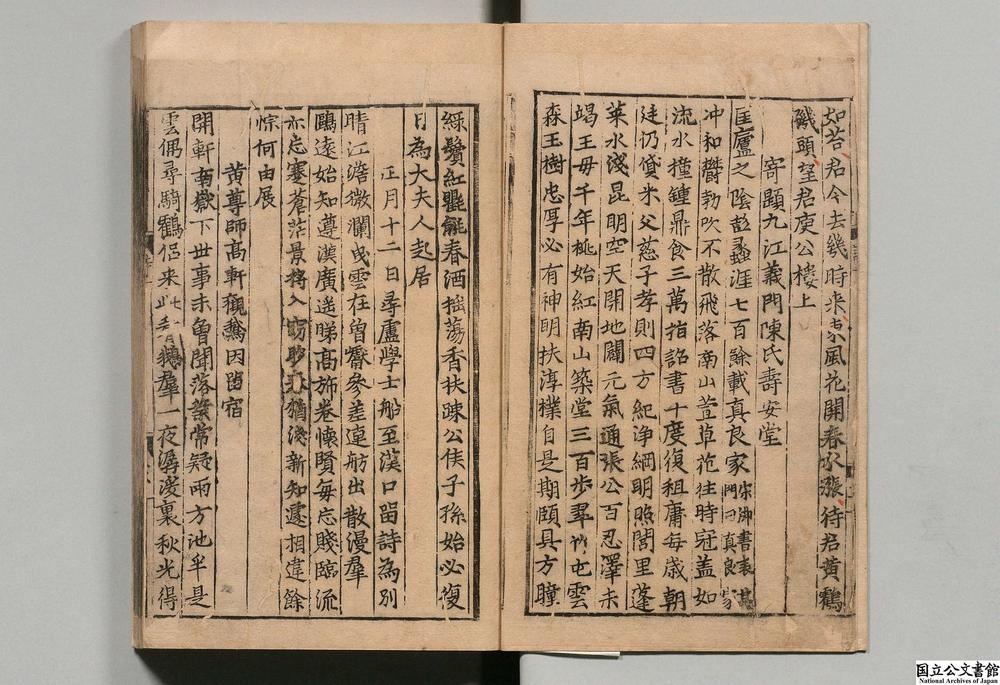 如苔君今去幾時来東風花開春水漲待君黄鶴
磯頭望君庾公樓上
寄題九江義門陳氏壽安堂
匡廬之陰彭蠡涯七百餘載真良家宋御書表其門曰真良家
冲和欝勃吹不散飛落南山萱草花往時冠盖如
流水撞鍾鼎食三萬指詔書十度復租庸每歳朝
廷仍貸米父慈子孝則四方紀浄綱明照閭里蓬
萊水淺昆明空天開地闢元氣通張公百忍澤未
竭王母千年桃始紅南山築堂三百歩翠竹屯雲
森玉樹忠厚必有神明扶淳樸自是期頤具方瞳
綠鬢紅氍毹春酒摇蕩香扶疎公侯子孫始必復
日為大夫人起居
正月十二日尋盧學士船至漢口留詩為別
晴江澹微瀾曵雲在曾㟽參差連舫出散漫羣
鷗遠始知遵漢廣遥睇髙旆卷懷賢每忘賤臨流
亦忘蹇蒼茫景将入猶淺新知遽相違餘
悰何由展
黄尊師髙軒觀鵞因留宿
開軒南嶽下世事未曾聞落葉常疑雨方池半是
雲偶尋騎鶴侣来此看鵞羣一夜潺湲裏秋光得
国立公文書館
National Archives of Japan